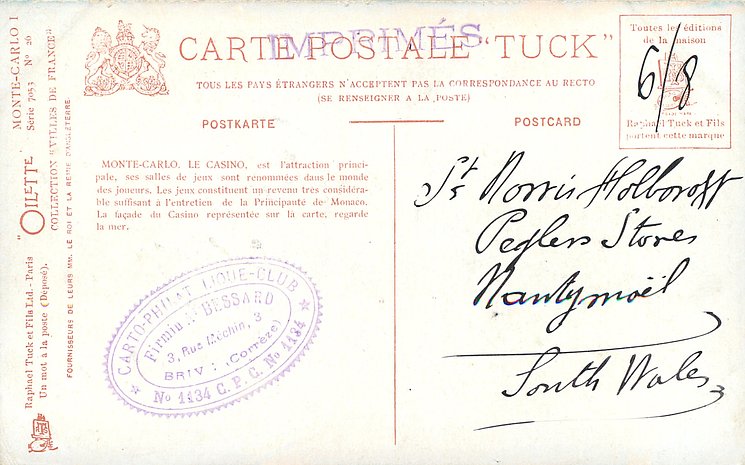 CARTE POSTALE "TUCK"
IMPRIMÉS
TOUS LES PAYS ÉTRANGERS N'ACCEPTENT PAS LA CORRESPONDANCE AU RECTO
(SE RENSEIGNER A LA POSTE)
POSTKARTE
POSTCARD
Toutes les éditions
de la maison
Raphael Tuck et Fils
portent cette marque
6/8
MONTE-CARLO. LE CASINO, est l'attraction princi-
pale, ses salles de jeux sont renommées dans le monde
des joueurs. Les jeux constituent un revenu tres considéra-
ble suffisant à l'entretien de la Principauté de Monaco.
La façade du Casino représentée sur la carte, regarde
la mer.
Norris Holborow
Peglers Stores
Nantymoël
South Wales
CARTO-PHILATELIQUE-CLUB
Firmin BESSARD
3, Rue Méchin, 3
BRIV : (Corrèze)
No 1134 C. P. C. No 1134
"OILETTE"
MONTE-CARLO I
Série 7053 No 26
COLLECTION "VILLES DE FRANCE"
Raphael Tuck et Fils Ltd. - Paris
Un mot à la poste (Déposé).
FOURNISSEURS DE LEURS MM. LE ROI ET LA REINE D'ANGLETERRE